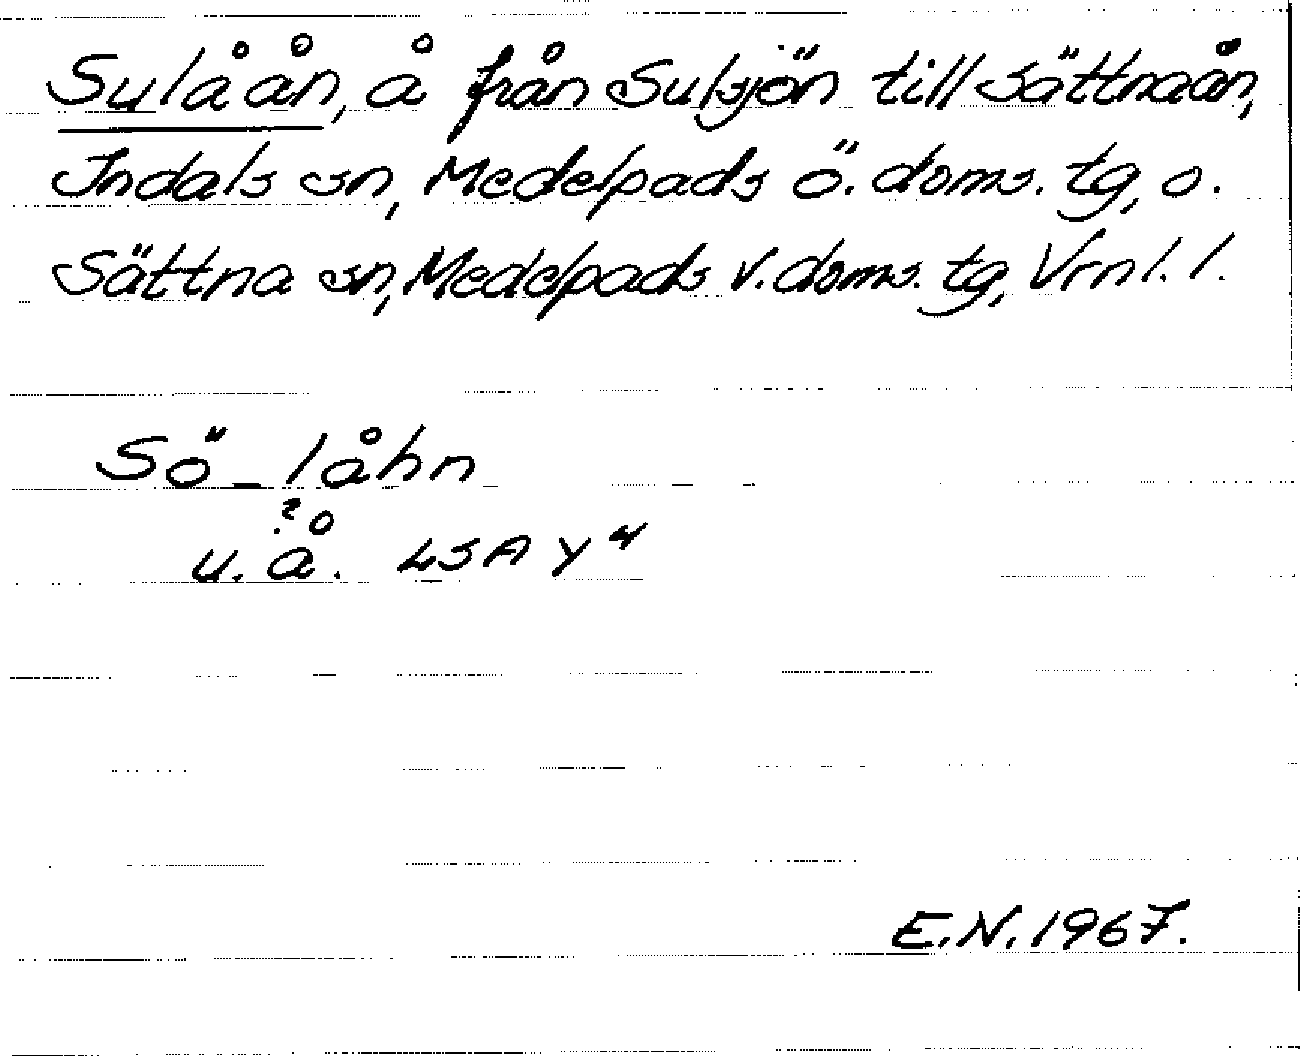 Sulåån, å från Sulsjön till Sättnaån,
Indals sn, Medelpads ö. doms. tg, o.
Sättna sn, Medelpads v. doms. tg, Vrnl. l.
Sö-låhn
u.å. LSA Y 4
E.N. 1967.